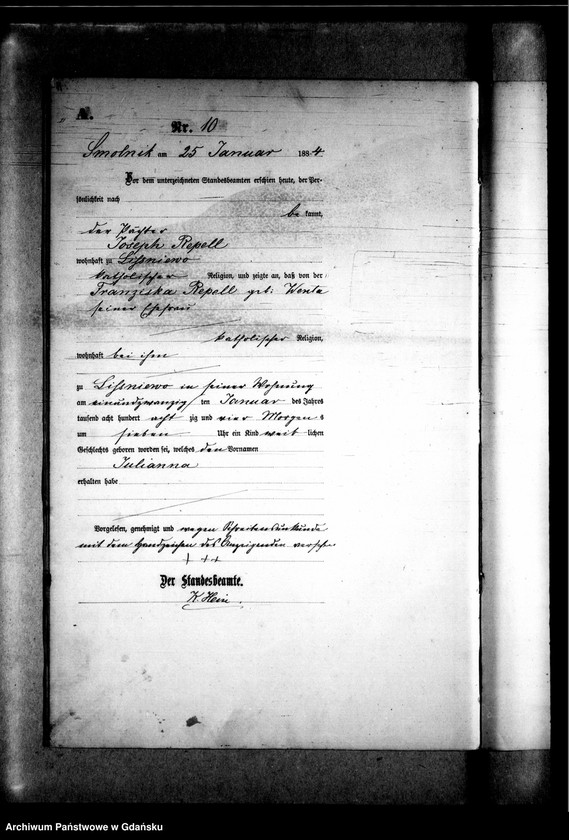 A.
Nr. 10
Smolnik am 25 Januar 1884
Vor dem unterzeichneten Standesbeamten erschien heute, der Per-
sönlichkeit nach
be kannt,
der Pächter
Joseph Repell
wohnhaft zu Lissniewo
katholischer Religion, und zeigte an, daß von der
Franziska Repell geb: Wenta
seiner Ehefrau
katholischer Religion,
wohnhaft bei ihm
zu Lissniewo in seiner Wohnung
am einundzwanzig ten Januar des Jahres
tausend acht hundert acht zig und vier Morgen s
um sieben Uhr ein Kind weib lichen
Geschlechts geboren worden sei, welches den Vornamen
Julianna
erhalten habe
Vorgelesen, genehmigt und wegen Schreibensunkunde
mit dem Handzeichen des Anzeigenden versehen
+ + +
Der Standesbeamte.
K. Hein.
Archiwum Państwowe w Gdańsku